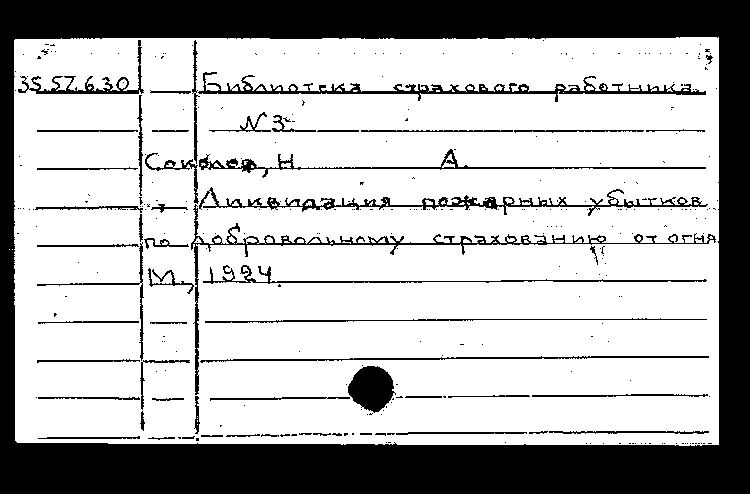 35.57.6.30 Библиотека страхового работника.
№3.
Соколов, Н. А.
Ликвидация пожарных убытков
по добровольному страхованию от огня
М., 1924.